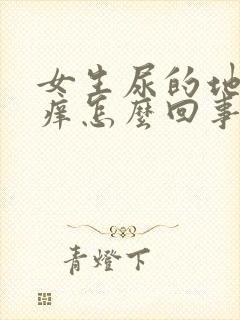 女生尿的地
痒怎麼回事
青燈下